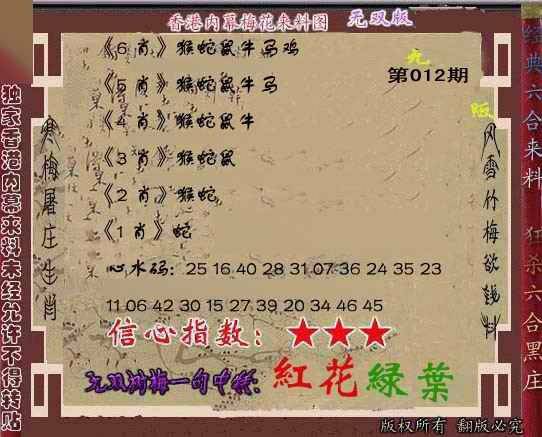 香港内幕梅花来料图 无双版
《6肖》猴蛇鼠牛马鸡
《5肖》猴蛇鼠牛马
《4肖》猴蛇鼠牛
《3肖》猴蛇鼠
《2肖》猴蛇
《1肖》蛇
第012期
心水码：25 16 40 28 31 07 36 24 35 23
11 06 42 30 15 27 39 20 34 46 45
信心指数：★★★
无双浏梅一句中特：紅花綠葉
独家香港内幕来料未经允许不得转贴
寒梅屠庄生肖
风雪竹梅欲钱料
经典六合来料 狂杀六合黑庄
版权所有 翻版必究